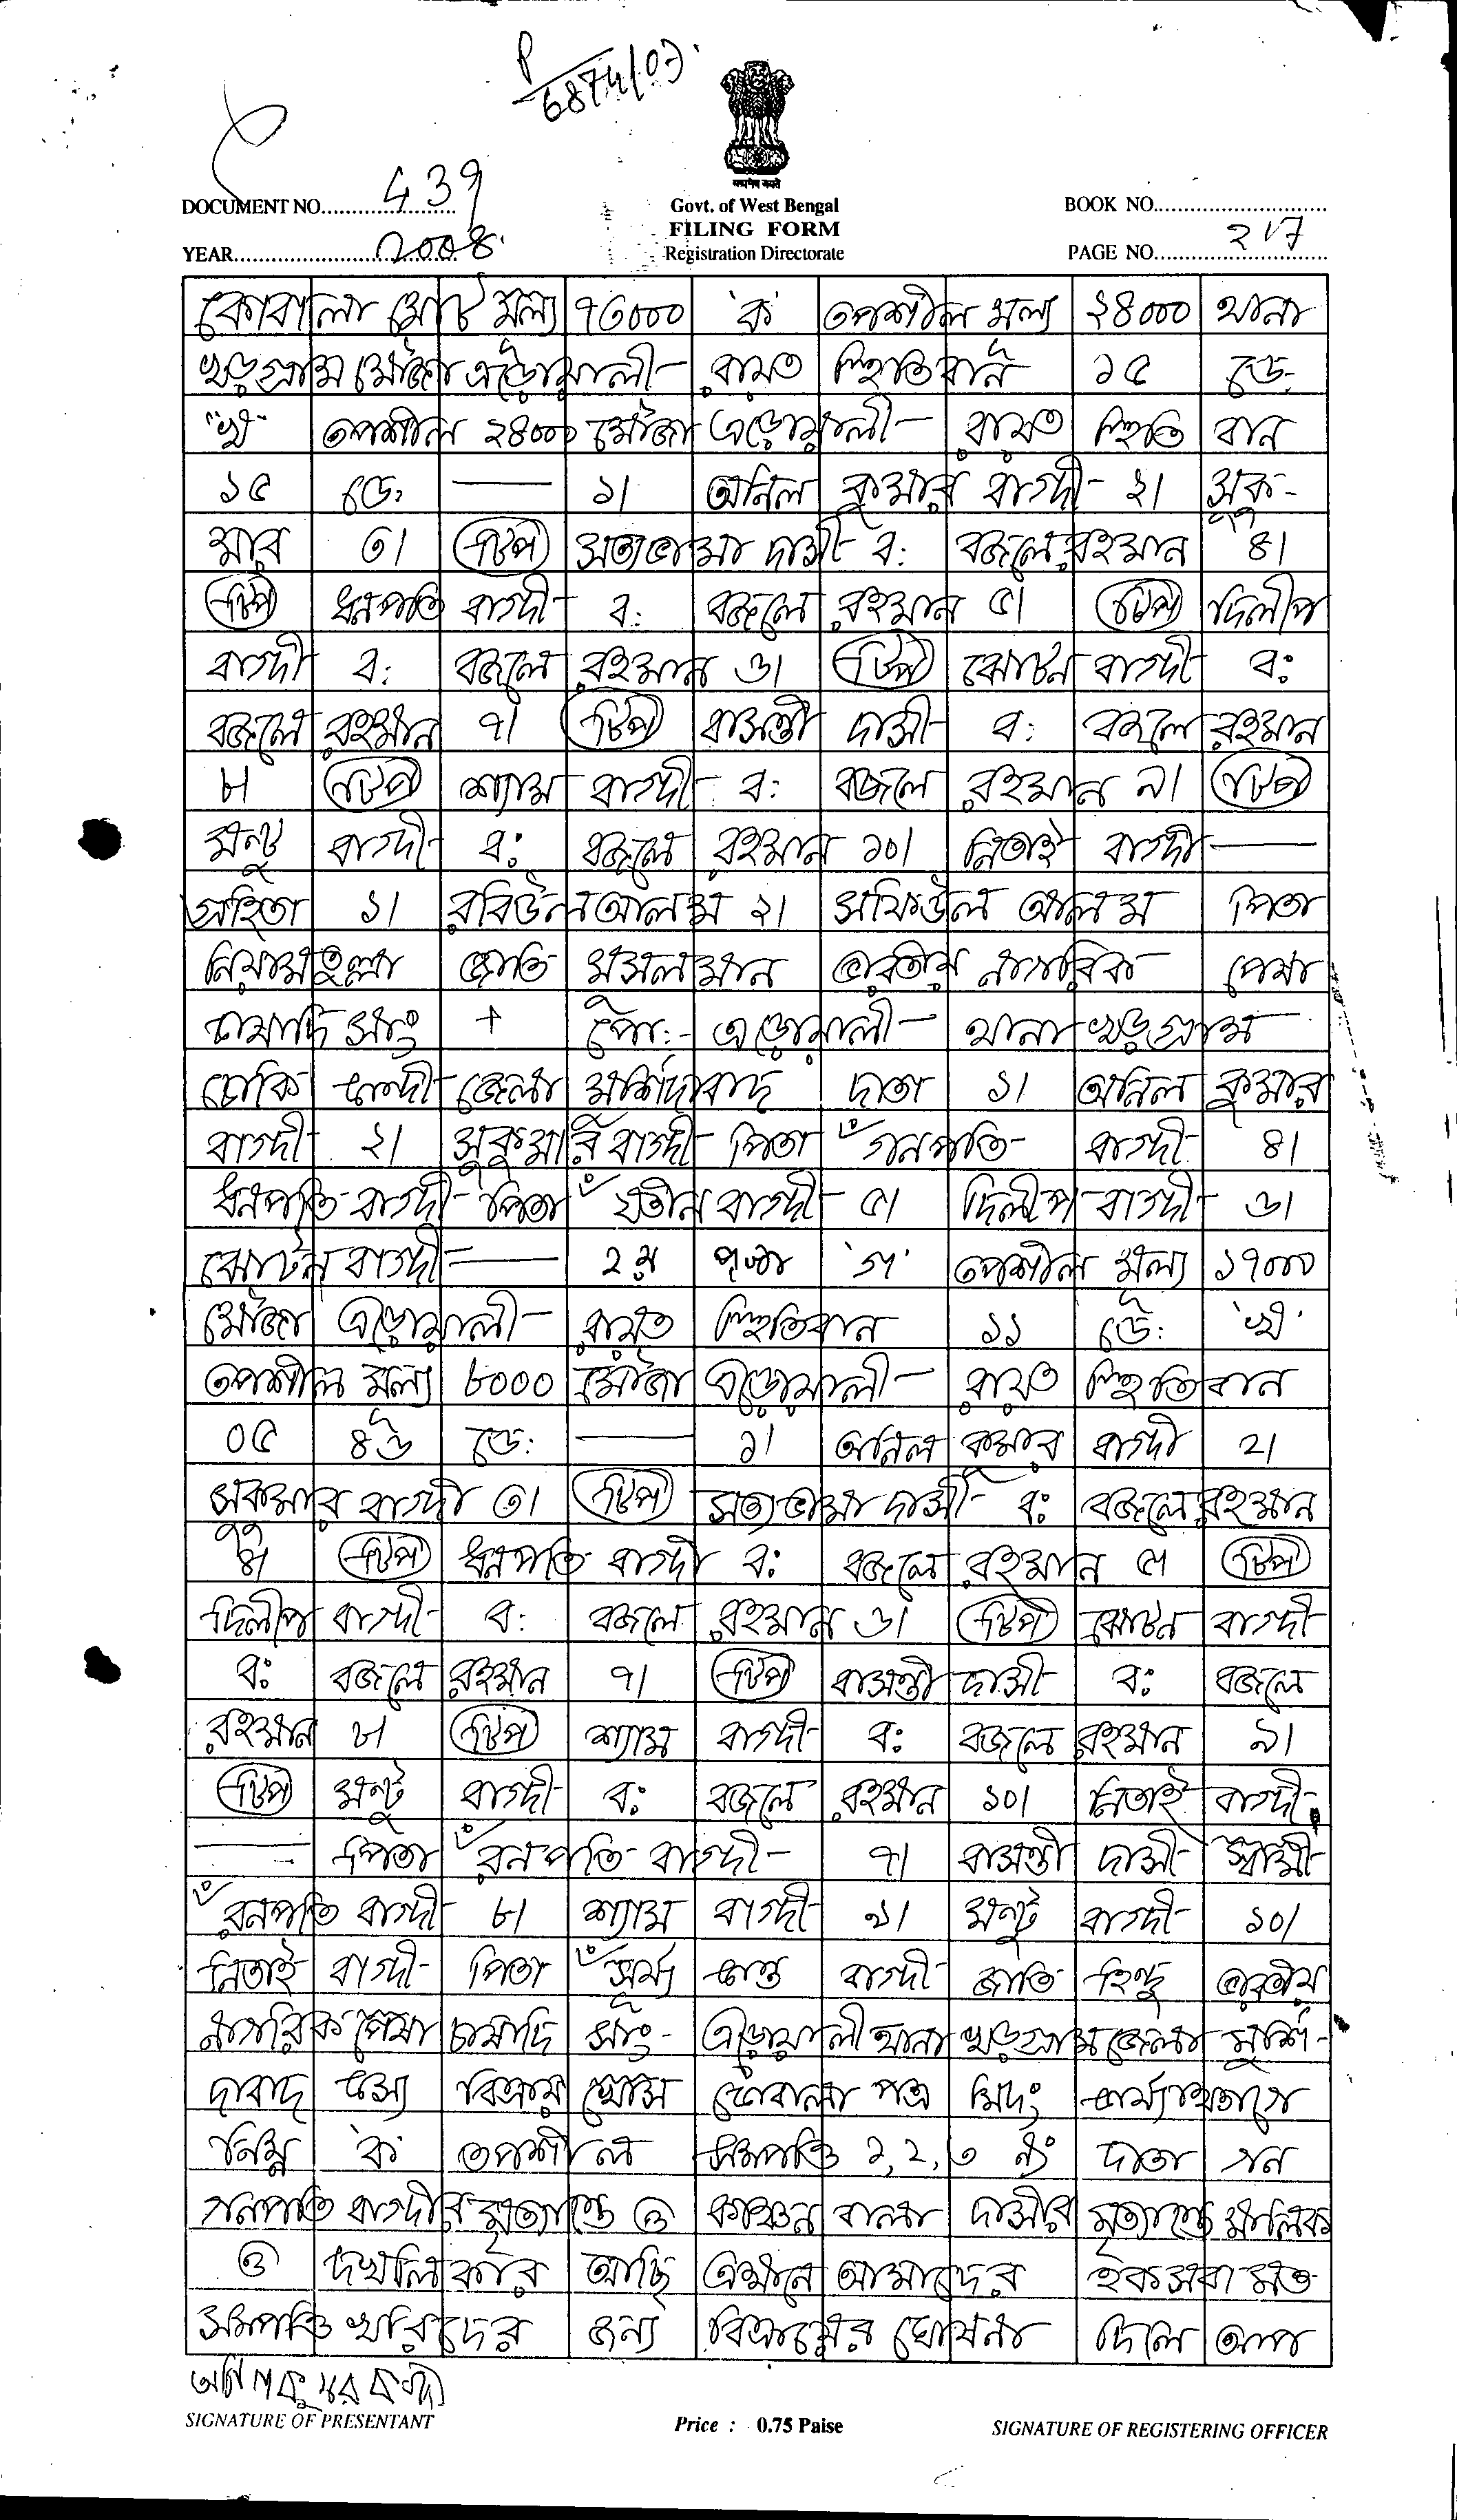 P
6874/03
DOCUMENT NO. 439
YEAR 2008
सत्यमेव जयते
Govt. of West Bengal
FILING FORM
Registration Directorate
BOOK NO.
PAGE NO. 217
কোবালা মোট মূল্য ৭৩০০০ 'ক' তপশীল মূল্য ২৪০০০ থানা
খড়গ্রাম মৌজা এড়োয়ালী রায়ত স্থিতিবান ১৫ ডেঃ
"খ" তপশীল ২৪০০০ মৌজা এড়োয়ালী রায়ত স্থিতি বান
১৫ ডেঃ — ১। অনিল কুমার বাগ্দী ২। সুকু-
মার ৩। টিপ সত্যভামা দাসী ব: বজলে রহমান ৪।
টিপ ধনপতি বাগ্দী ব: বজলে রহমান ৫। টিপ দিলীপ
বাগ্দী ব: বজলে রহমান ৬। টিপ ঝোটন বাগ্দী ব:
বজলে রহমান ৭। টিপ বাসন্তী দাসী ব: বজলে রহমান
৮। টিপ শ্যাম বাগ্দী ব: বজলে রহমান ৯। টিপ
মন্টু বাগ্দী ব: বজলে রহমান ১০। নিতাই বাগ্দী —
গ্রহিতা ১। রবিউল আলম ২। সফিউল আলম পিতা
নিয়ামতুল্লা জাতি মুসলমান ভারতীয় নাগরিক পেষা
চাষাদি সাং + পো:- এড়োয়ালী থানা খড়গ্রাম
চৌকি কান্দী জেলা মুর্শিদাবাদ দাতা ১। অনিল কুমার
বাগ্দী ২। সুকুমার বাগ্দী পিতা ঁগনপতি বাগ্দী ৪।
ধনপতি বাগ্দী পিতা ঁযতীন বাগ্দী ৫। দিলীপ বাগ্দী ৬।
ঝোটন বাগ্দী — ২য় পৃষ্ঠা 'গ' তপশীল মূল্য ১৭০০০
মৌজা এড়োয়ালী রায়ত স্থিতিবান ১১ ডে: 'খ'
তপশীল মূল্য ৮০০০ মৌজা এড়োয়ালী রায়ত স্থিতিবান
০৫ ৪৬ ডে: — ১। অনিল কুমার বাগ্দী ২।
সুকুমার বাগ্দী ৩। টিপ সত্যভামা দাসী ব: বজলে রহমান
৪। টিপ ধনপতি বাগ্দী ব: বজলে রহমান ৫। টিপ
দিলীপ বাগ্দী ব: বজলে রহমান ৬। টিপ ঝোটন বাগ্দী
ব: বজলে রহমান ৭। টিপ বাসন্তী দাসী ব: বজলে
রহমান ৮। টিপ শ্যাম বাগ্দী ব: বজলে রহমান ৯।
টিপ মন্টু বাগ্দী ব: বজলে রহমান ১০। নিতাই বাগ্দী
— পিতা ঁরনপতি বাগ্দী ৭। বাসন্তী দাসী স্বামী
ঁরনপতি বাগ্দী ৮। শ্যাম বাগ্দী ৯। মন্টু বাগ্দী ১০।
নিতাই বাগ্দী পিতা ঁসূর্য্য কান্ত বাগ্দী জাতি হিন্দু ভারতীয়
নাগরিক পেষা চাষাদি সাং- এড়োয়ালী থানা খড়গ্রাম জেলা মুর্শি-
দাবাদ কস্য বিক্রয় খোস কোবালা পত্র মিদং কার্য্যাঞ্চাগে
নিম্ন 'ক' তপশীল সম্পত্তি ১, ২, ৩ নং দাতা গন
গনপতি বাগ্দীর মৃত্যান্তে ও কাঞ্চন বালা দাসীর মৃত্যান্তে মালিক
ও দখলিকার আছি এক্ষনে আমাদের হকসবা মত
সম্পত্তি খরিদের জন্য বিক্রয়ের ঘোষনা দিলে আপ
অনিল কুমার বাগ্দী
SIGNATURE OF PRESENTANT
Price : 0.75 Paise
SIGNATURE OF REGISTERING OFFICER